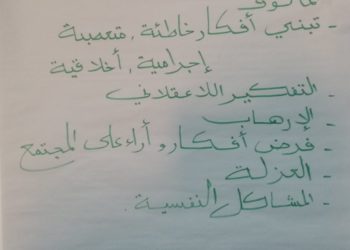 - تبني أفكار خاطئة، متعصبة
إجرامية، أخلاقية
- التفكير اللاعقلاني
- الإرهاب
- فرض أفكار و أراء على المجتمع
- العزلة
- المشاكل النفسية.